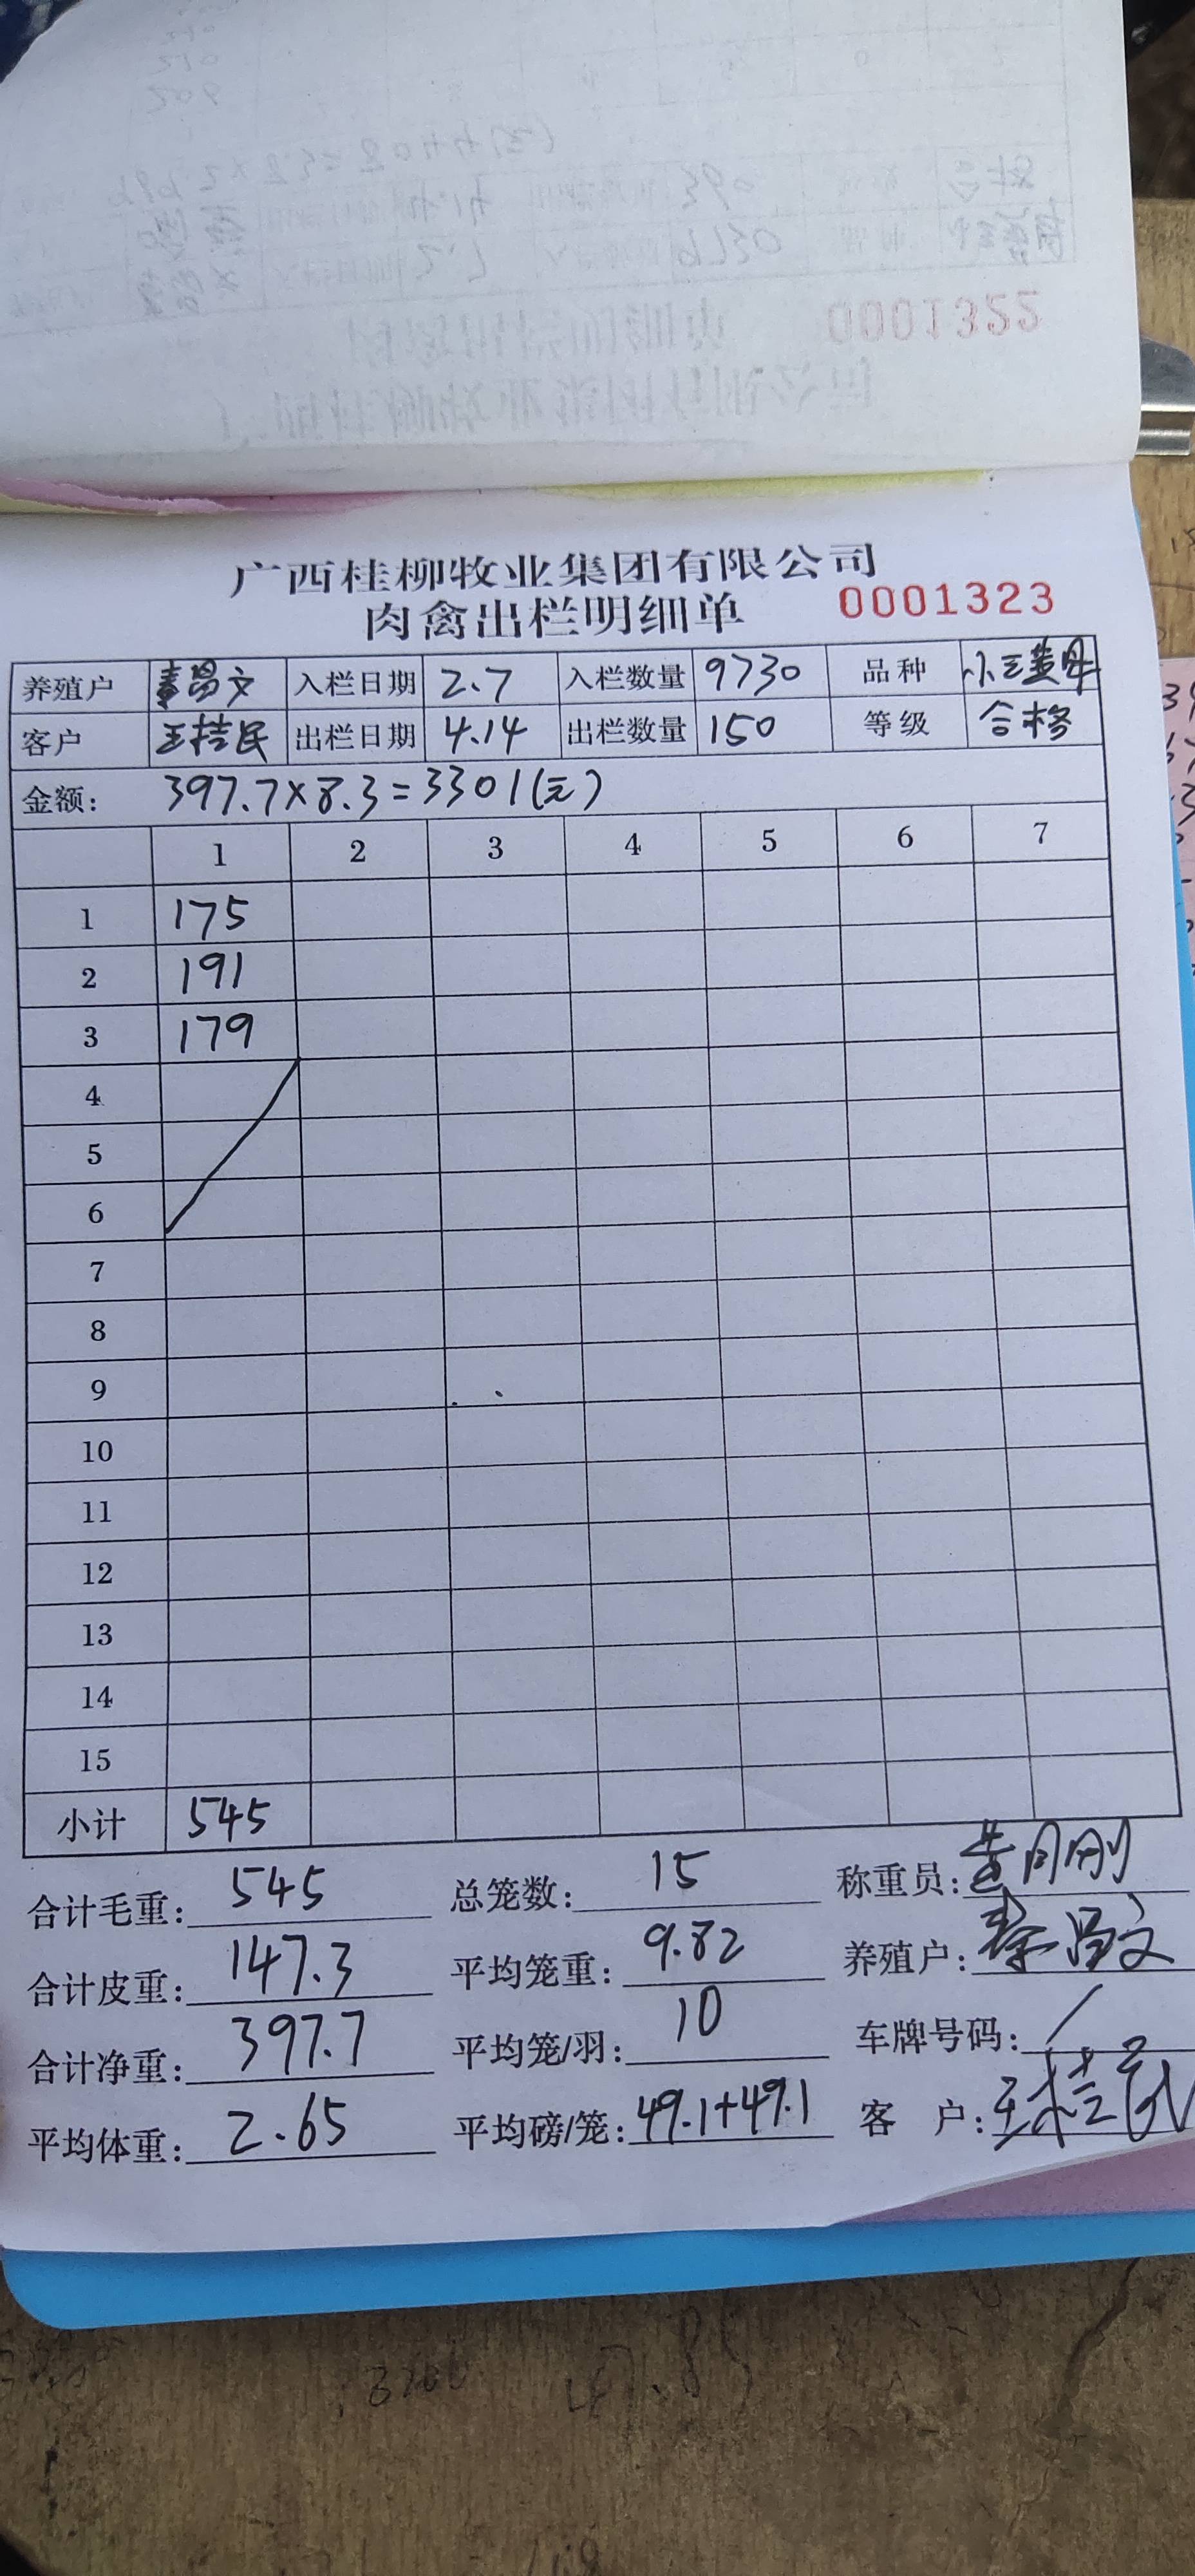 0001322
广西桂柳牧业集团有限公司
肉禽出栏明细单 0001323
养殖户 秦昌文 入栏日期 2.7 入栏数量 9730 品种 小三黄母
客户 王桂民 出栏日期 4.14 出栏数量 150 等级 合格
金额: 397.7×8.3=3301(元)
1 2 3 4 5 6 7
1 175
2 191
3 179
4
5
6
7
8
9
10
11
12
13
14
15
小计 545
合计毛重: 545 总笼数: 15 称重员:
合计皮重: 147.3 平均笼重: 9.82 养殖户: 秦昌文
合计净重: 397.7 平均笼/羽: 10 车牌号码: /
平均体重: 2.65 平均磅/笼: 49.1+49.1 客户: 王桂民